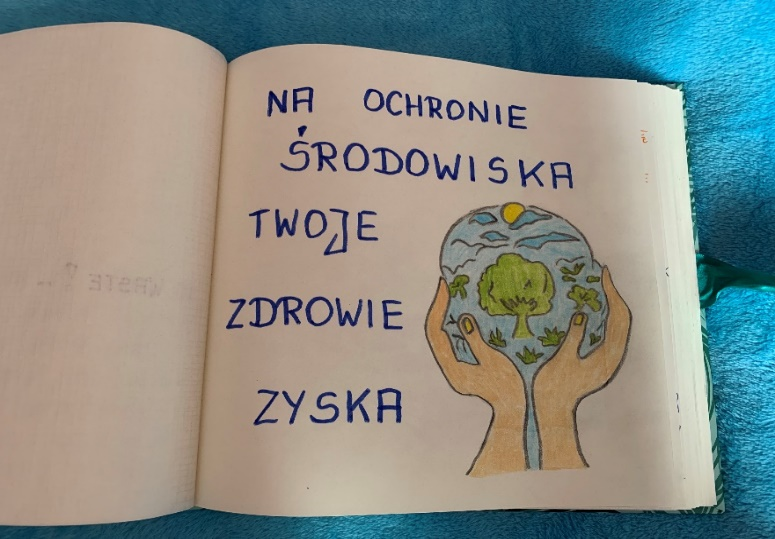 NA OCHRONIE
ŚRODOWISKA
TWOJE
ZDROWIE
ZYSKA